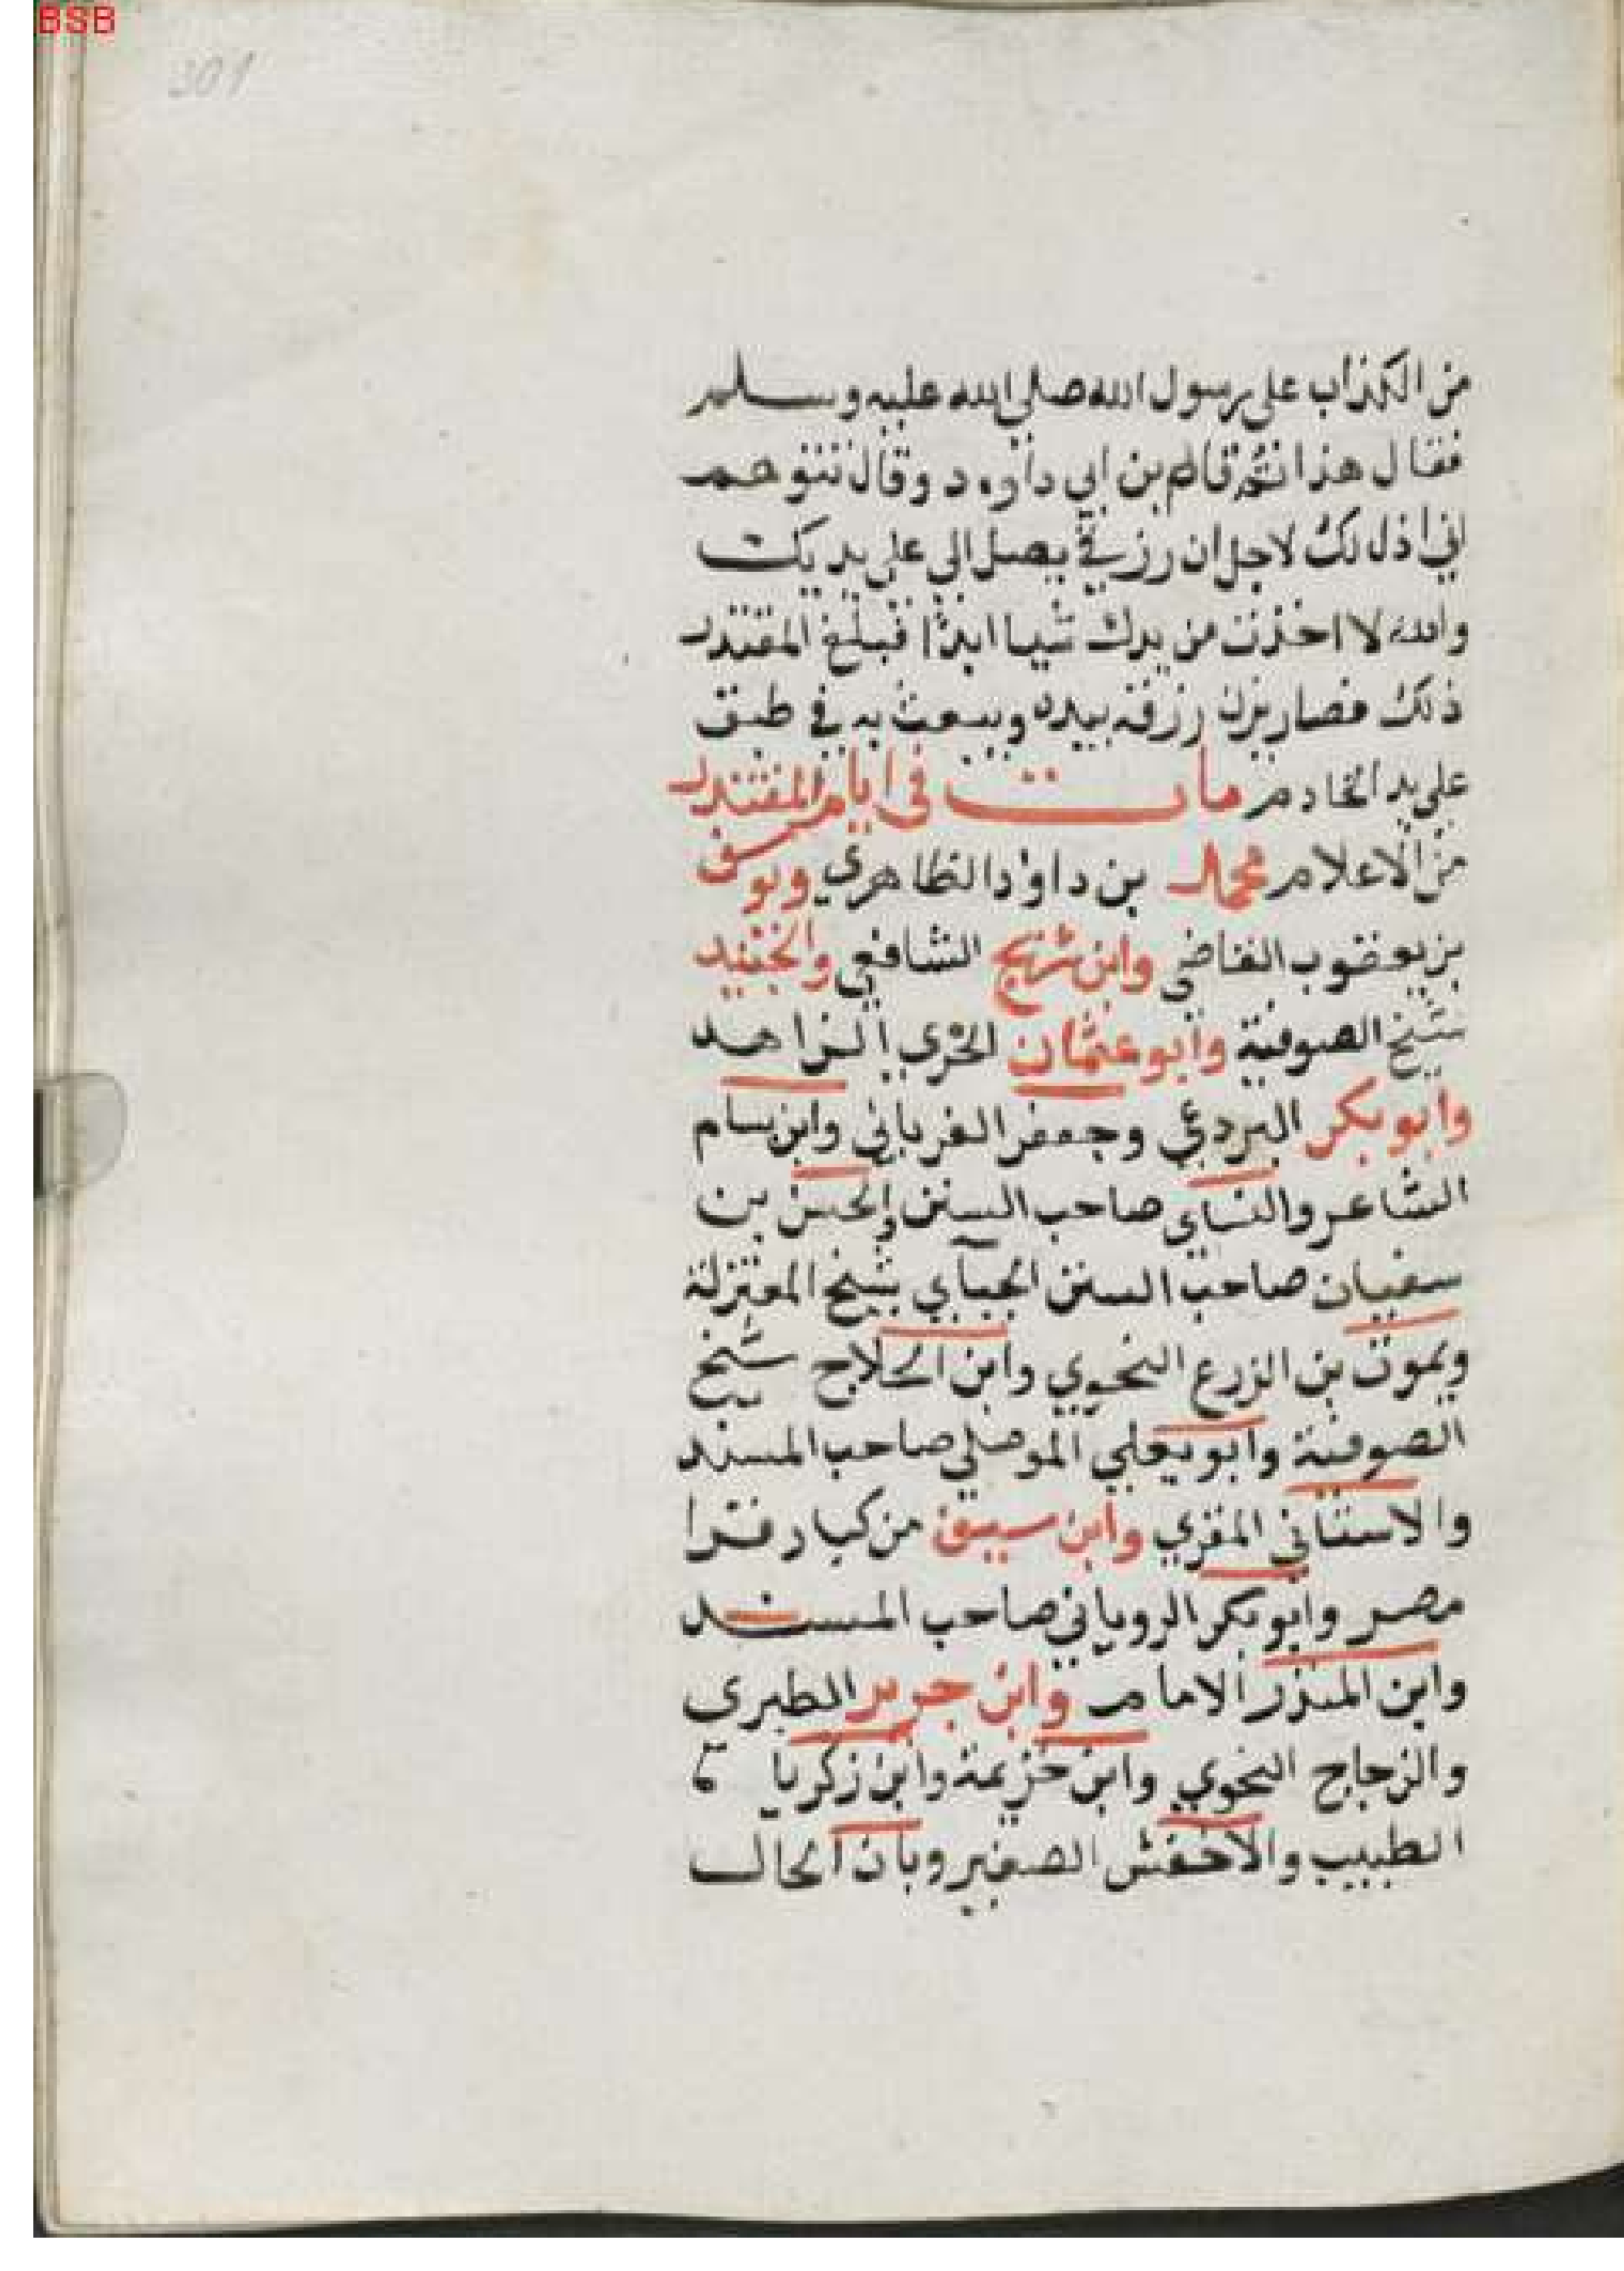 BSB
301
من الكذاب على رسول الله صلى الله عليه وسلم
فقال هذا ثم قام بن ابي داوود وقال تتوهم
اني اذل لك لاجل ان رزقي يصل الي على يديك
والله لا اخذت من يدك شيا ابدا فبلغ المقتدر
ذلك فصار يزن رزقه بيده ويبعث به في طبق
على يد الخادم مات في ايام المقتدر
من الاعلام محمد بن داوود الظاهري ويوسف
بن يعقوب القاضي وابن شريح الشافعي والجنيد
شيخ الصوفية وابو عثمان الحري الزاهد
وابو بكر البردعي وجعفر الغرياني وابن بسام
الشاعر والنساي صاحب السنن والحسن بن
سفيان صاحب السنن الجباي شيخ المعتزلة
ويموت بن الزرع النحوي وابن الحلاج شيخ
الصوفية وابو يعلي الموصلي صاحب المسند
والاستاني المقري وابن سيف من كبار قرا
مصر وابو بكر الروياني صاحب المسند
وابن المنذر الامام وابن جرير الطبري
والزجاج النحوي وابن خزيمة وابن زكريا
الطبيب والاخفش الصغير وبان الحال